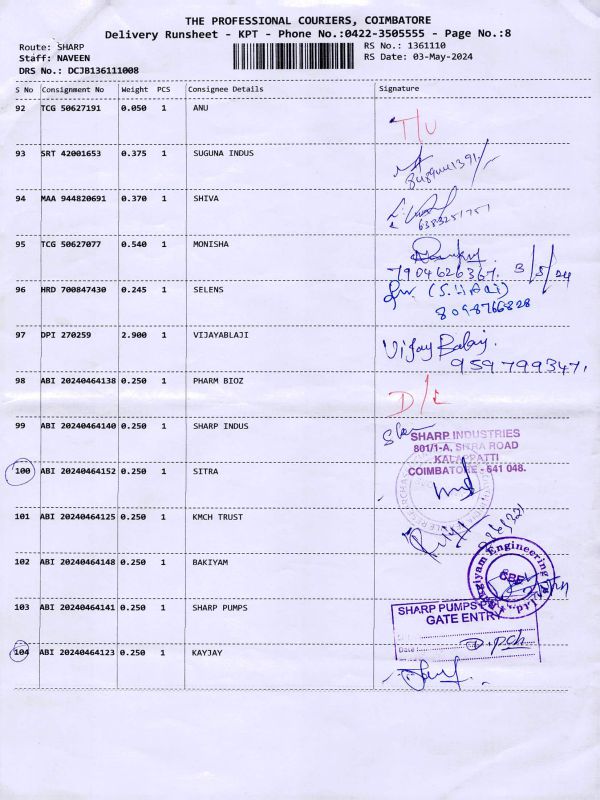 THE PROFESSIONAL COURIERS, COIMBATORE
Delivery Runsheet - KPT - Phone No.:0422-3505555 - Page No.:8
Route: SHARP
Staff: NAVEEN
DRS No.: DCJB136111008
RS No.: 1361110
RS Date: 03-May-2024
S No Consignment No Weight PCS Consignee Details Signature
92 TCG 50627191 0.050 1 ANU
93 SRT 42001653 0.375 1 SUGUNA INDUS
94 MAA 944820691 0.370 1 SHIVA
6383251751
95 TCG 50627077 0.540 1 MONISHA
7904626367. 3/5/24
96 HRD 700847430 0.245 1 SELENS
8098766828
97 DPI 270259 2.900 1 VIJAYABLAJI
Vijay Balaji.
959799347.
98 ABI 20240464138 0.250 1 PHARM BIOZ
99 ABI 20240464140 0.250 1 SHARP INDUS
SHARP INDUSTRIES
801/1-A, SITRA ROAD
KALAPPATTI
COIMBATORE - 641 048.
100 ABI 20240464152 0.250 1 SITRA
101 ABI 20240464125 0.250 1 KMCH TRUST
102 ABI 20240464148 0.250 1 BAKIYAM
Engineering
103 ABI 20240464141 0.250 1 SHARP PUMPS
SHARP PUMPS
GATE ENTRY
104 ABI 20240464123 0.250 1 KAYJAY